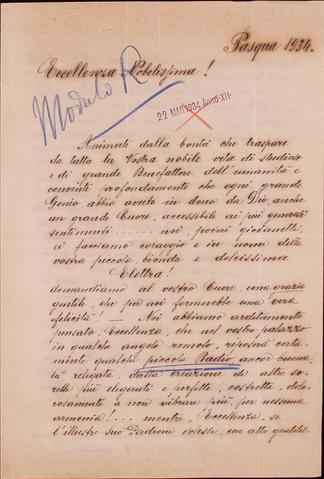 Pasqua 1934.
Eccellenza Nobilissima!
Modulo R
22 MAR 1934 Anno XII
Animati dalla bontà che traspare
da tutta la Vostra nobile vita di studioso
e di grande Benefattore dell'umanità e
convinti profondamente che ogni grande
Genio abbia avuto in dono da Dio, anche
un grande Cuore, accessibile ai più generosi
sentimenti ...... noi poveri giovanetti,
ci facciamo coraggio e in nome della
vostra piccola, bionda e dolcissima
Elettra!
domandiamo al vostro Cuore una grazia
gentile, che per noi formerebbe una vera
felicità! — Noi abbiamo arditamente
pensato, Eccellenza, che nel vostro palazzo
in qualche angolo remoto, riposerà certa-
mente qualche piccola Radio ancor buona,
là relegata, dalla creazione di altre so-
relle più eleganti e perfette, costretta, dolo-
rosamente a non vibrare più, per nessuna
armonia!... mentre, Eccellenza, se
l'illustre suo Padrone volesse, con atto gentiliss.